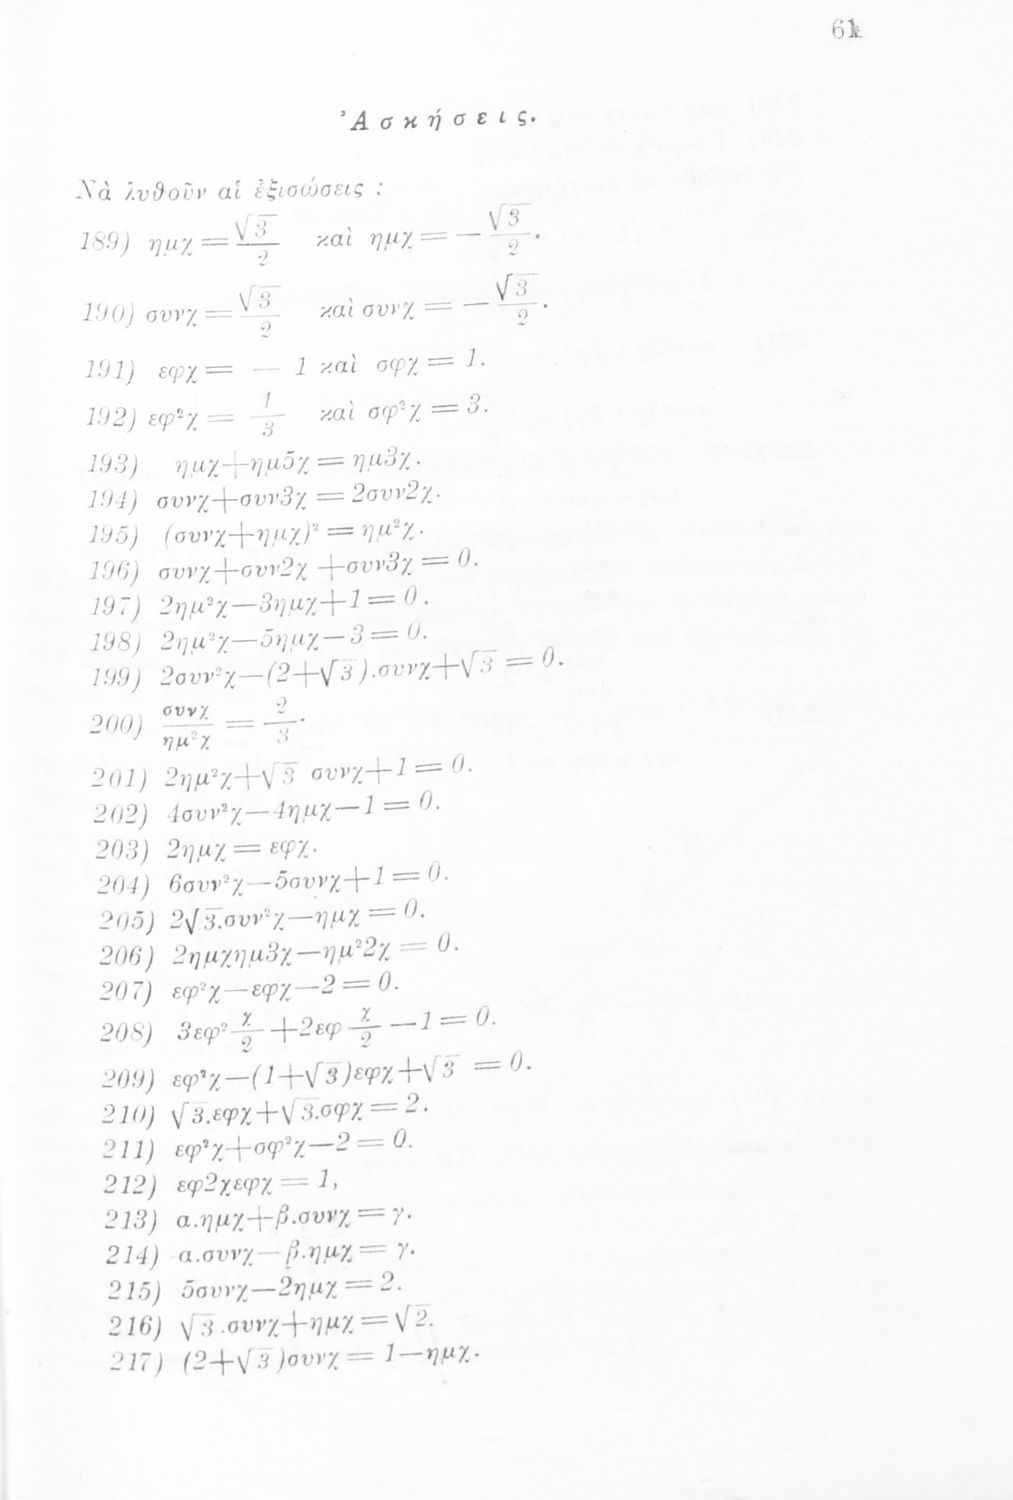 61
Ἀσκήσεις.
Νὰ λυθοῦν αἱ ἐξισώσεις :
189) ημχ = √3/2 καὶ ημχ = — √3/2.
190) συνχ = √3/2 καὶ συνχ = — √3/2.
191) εφχ = — 1 καὶ σφχ = 1.
192) εφ²χ = 1/3 καὶ σφ²χ = 3.
193) ημχ+ημ5χ = ημ3χ.
194) συνχ+συν3χ = 2συν2χ.
195) (συνχ+ημχ)² = ημ²χ.
196) συνχ+συν2χ +συν3χ = 0.
197) 2ημ²χ—3ημχ+1 = 0.
198) 2ημ²χ—5ημχ—3 = 0.
199) 2συν²χ—(2+√3).συνχ+√3 = 0.
200) συνχ/ημ²χ = 2/3.
201) 2ημ²χ+√3 συνχ+1 = 0.
202) 4συν²χ—4ημχ—1 = 0.
203) 2ημχ = εφχ.
204) 6συν²χ—5συνχ+1 = 0.
205) 2√3.συν²χ—ημχ = 0.
206) 2ημχημ3χ—ημ²2χ = 0.
207) εφ²χ—εφχ—2 = 0.
208) 3εφ² χ/2 +2εφ χ/2 —1 = 0.
209) εφ²χ—(1+√3)εφχ+√3 = 0.
210) √3.εφχ+√3.σφχ = 2.
211) εφ²χ+σφ²χ—2 = 0.
212) εφ2χεφχ = 1,
213) α.ημχ+β.συνχ = γ.
214) α.συνχ—β.ημχ = γ.
215) 5συνχ—2ημχ = 2.
216) √3.συνχ+ημχ = √2.
217) (2+√3)συνχ = 1—ημχ.